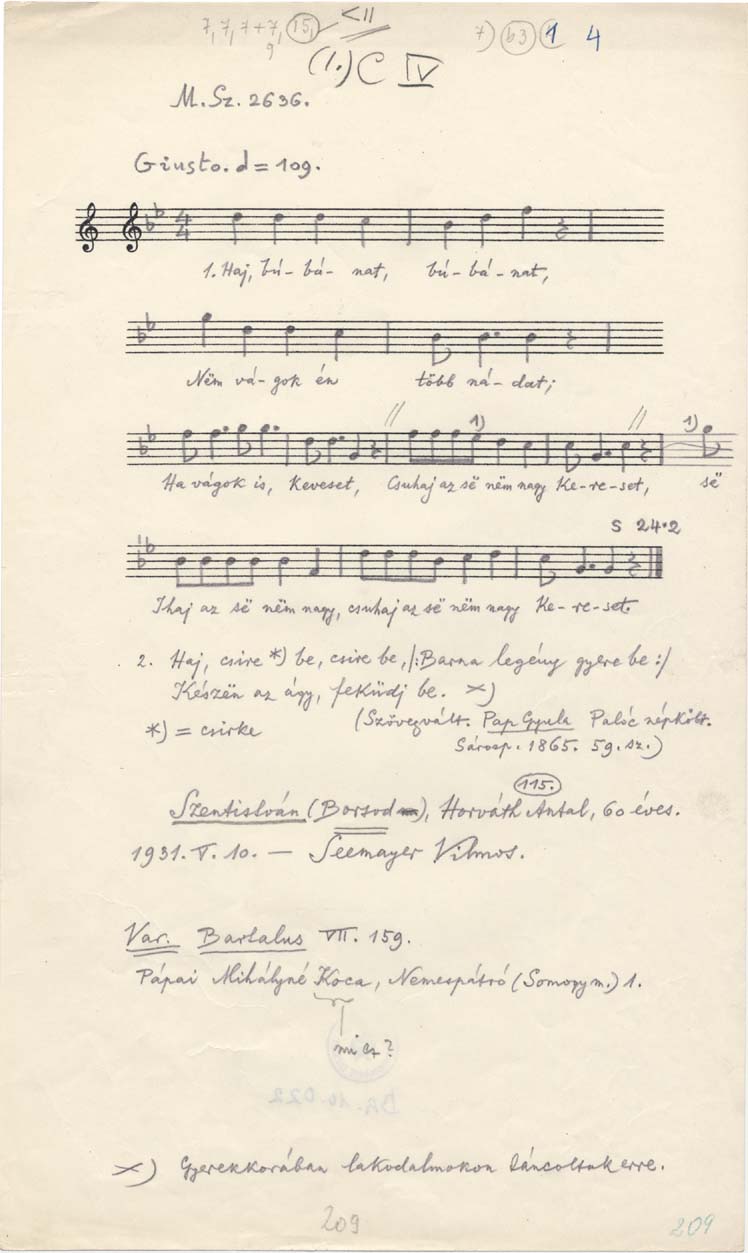 7, 7, 7+7, 15, <II
9
7) b3 1 4
(1.) C IV
M. Sz. 2636.
Giusto. d = 109.
4/4
1. Haj, bú-bá-nat, bú-bá-nat,
Nëm vá-gok én több ná-dat;
1) 1)
Ha vágok is, keveset, Csuhaj az së nëm nagy Ke-re-set, së
S 24.2
Ihaj az së nëm nagy, csuhaj az së nëm nagy Ke-re-set.
2. Haj, csire *) be, csire be, /: Barna legény gyere be :/
Készën az ágy, feküdj be. ×)
*) = csirke (Szövegvált. Pap Gyula Palóc népkölt.
Sárosp. 1865. 59. sz.)
115.
Szentistván (Borsod), Horváth Antal, 60 éves.
1931. V. 10. — Seemayer Vilmos.
Var. Bartalus VII. 159.
Pápai Mihályné Koca, Nemespátró (Somogy m.) 1.
mi ez?
×) Gyerekkorában lakodalmokon táncoltak erre.
209 209